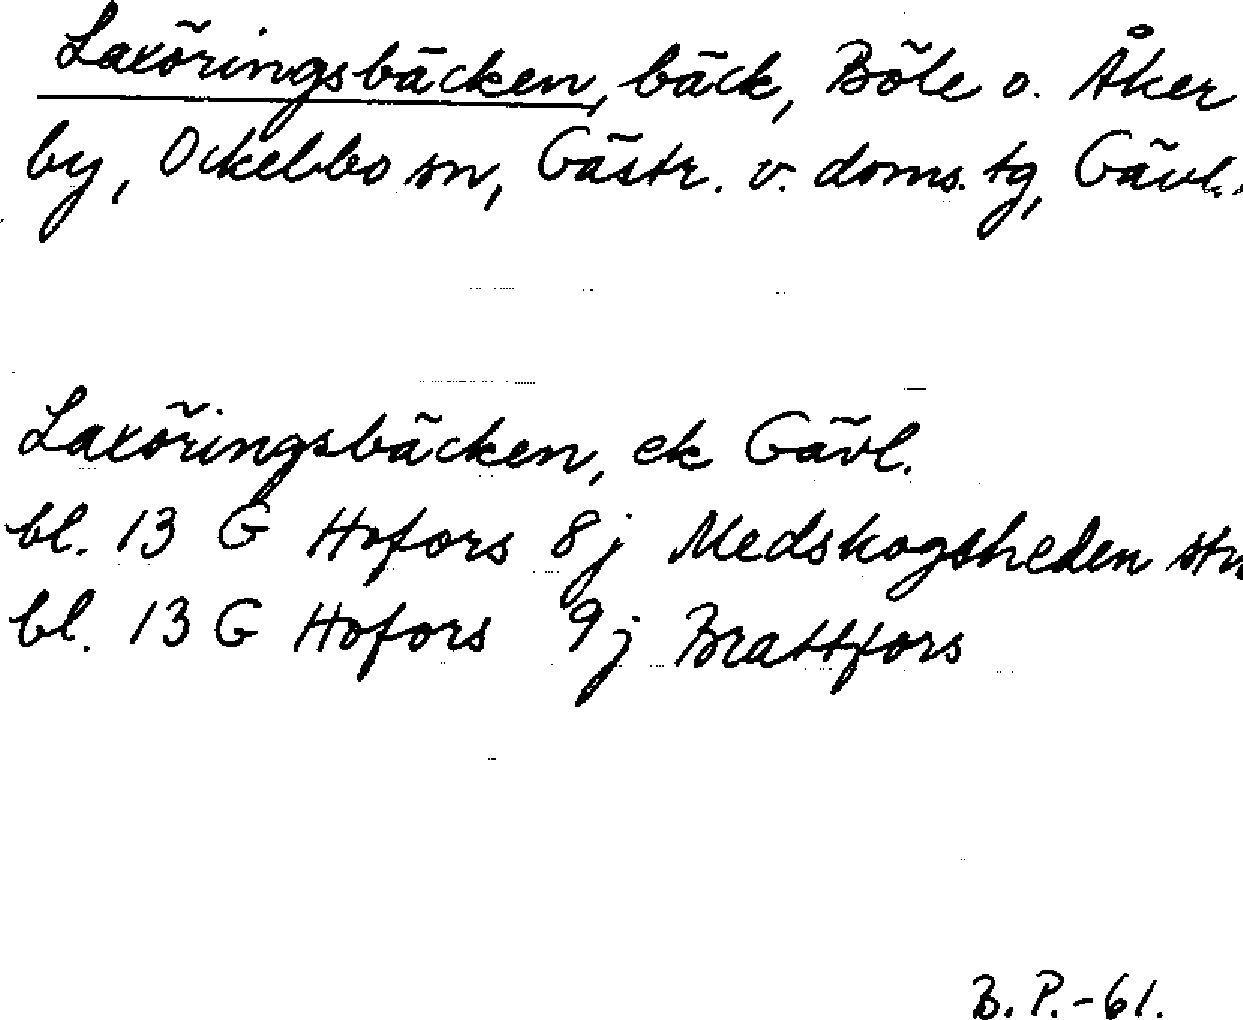 Laxöringsbäcken, bäck, Böle o. Åker
by, Ockelbo sn, Gästr. v. doms. tg, Gävl.
Laxöringsbäcken, ek Gävl.
bl. 13 G Hofors 8j Medskogsheden stn
bl. 13 G Hofors 9j Brattfors
B. P. -61.